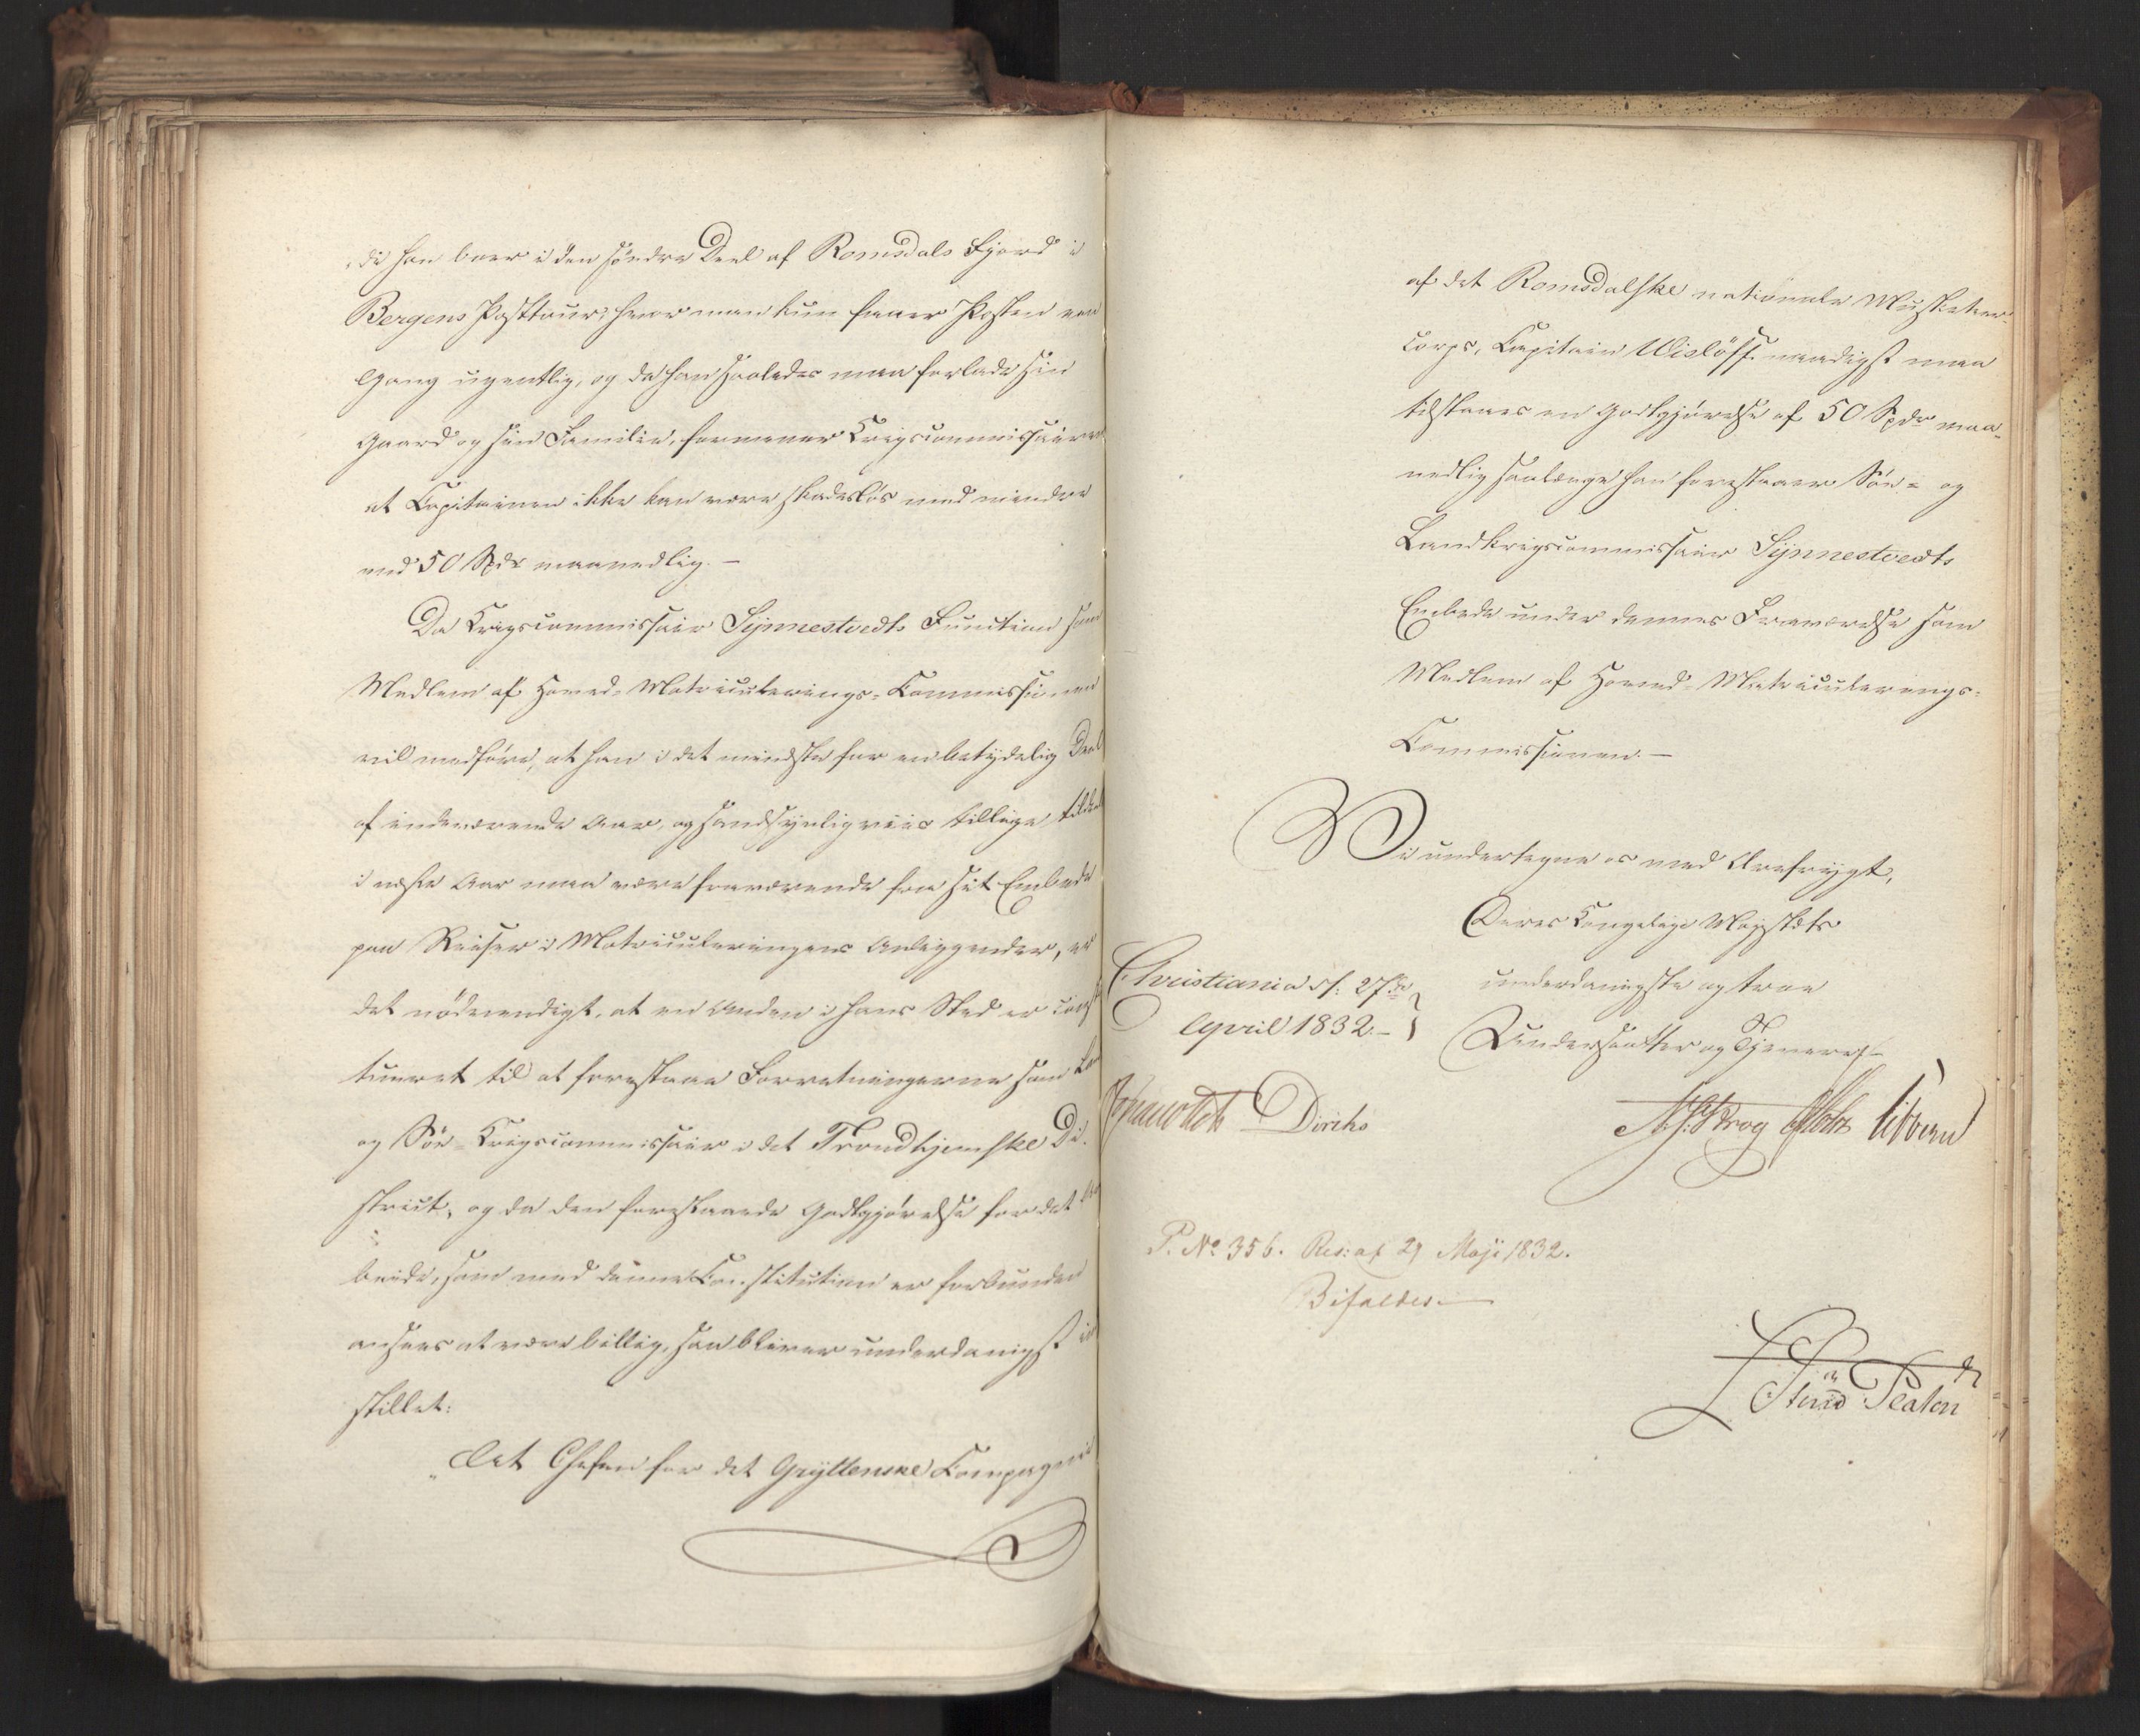 di han boer i den søndre Deel af Romsdals Fjord i
Bergens Posttour, hvor man kun faaer Posten een
Gang ugentlig, og da han saaledes maa forlade sin
Gaard og sin Familie, formener Krigscommissairen
at Capitainen ikke kan være skadesløs med mindre
end 50 Spdr maanedlig. —
Da Krigscommissair Synnestvedts Function som
Medlem af Hoved-Matriculerings-Commissionen
vil medføre, at han i det mindste for en betydelig Deel
af indeværende Aar, og sandsynligviis tillige tildeels
i næste Aar maa være fraværende fra sit Embede
paa Reiser i Matriculeringens Anliggender, er
det nødvendigt, at en Anden i hans Sted er consti
tueret til at forestaae Forretningerne som Land
og Söe-Krigscommissair i det Trondhjemske Di-
strict, og da den foreslaaede Godtgjørelse for det Ar
beide, som med denne Constitution er forbunden
ansees at være billig, saa bliver underdanigst ind
stillet:
„At Chefen for det Gryttenske Compagnie
af det Romsdalske nationale Musketeer-
corps, Capitain Wislöff naadigst maa
tilstaaes en Godtgjørelse af 50 Spdr maa-
nedlig saalænge han forestaaer Söe- og
Landkrigscommissair Synnestvedts
Embede under dennes Fraværelse som
Medlem af Hoved-Matriculerings-
Commissionen. —
Vi undertegne os med Ærefrygt,
Deres Kongelige Majestæts
underdanigste og troe
Undersaatter og Tjenere
Christiania d: 27de
April 1832. —
Diriks
Krog Holst Sibbern
P. No 356. Res: af 29 Maji 1832.
Bifaldes. —
Platen